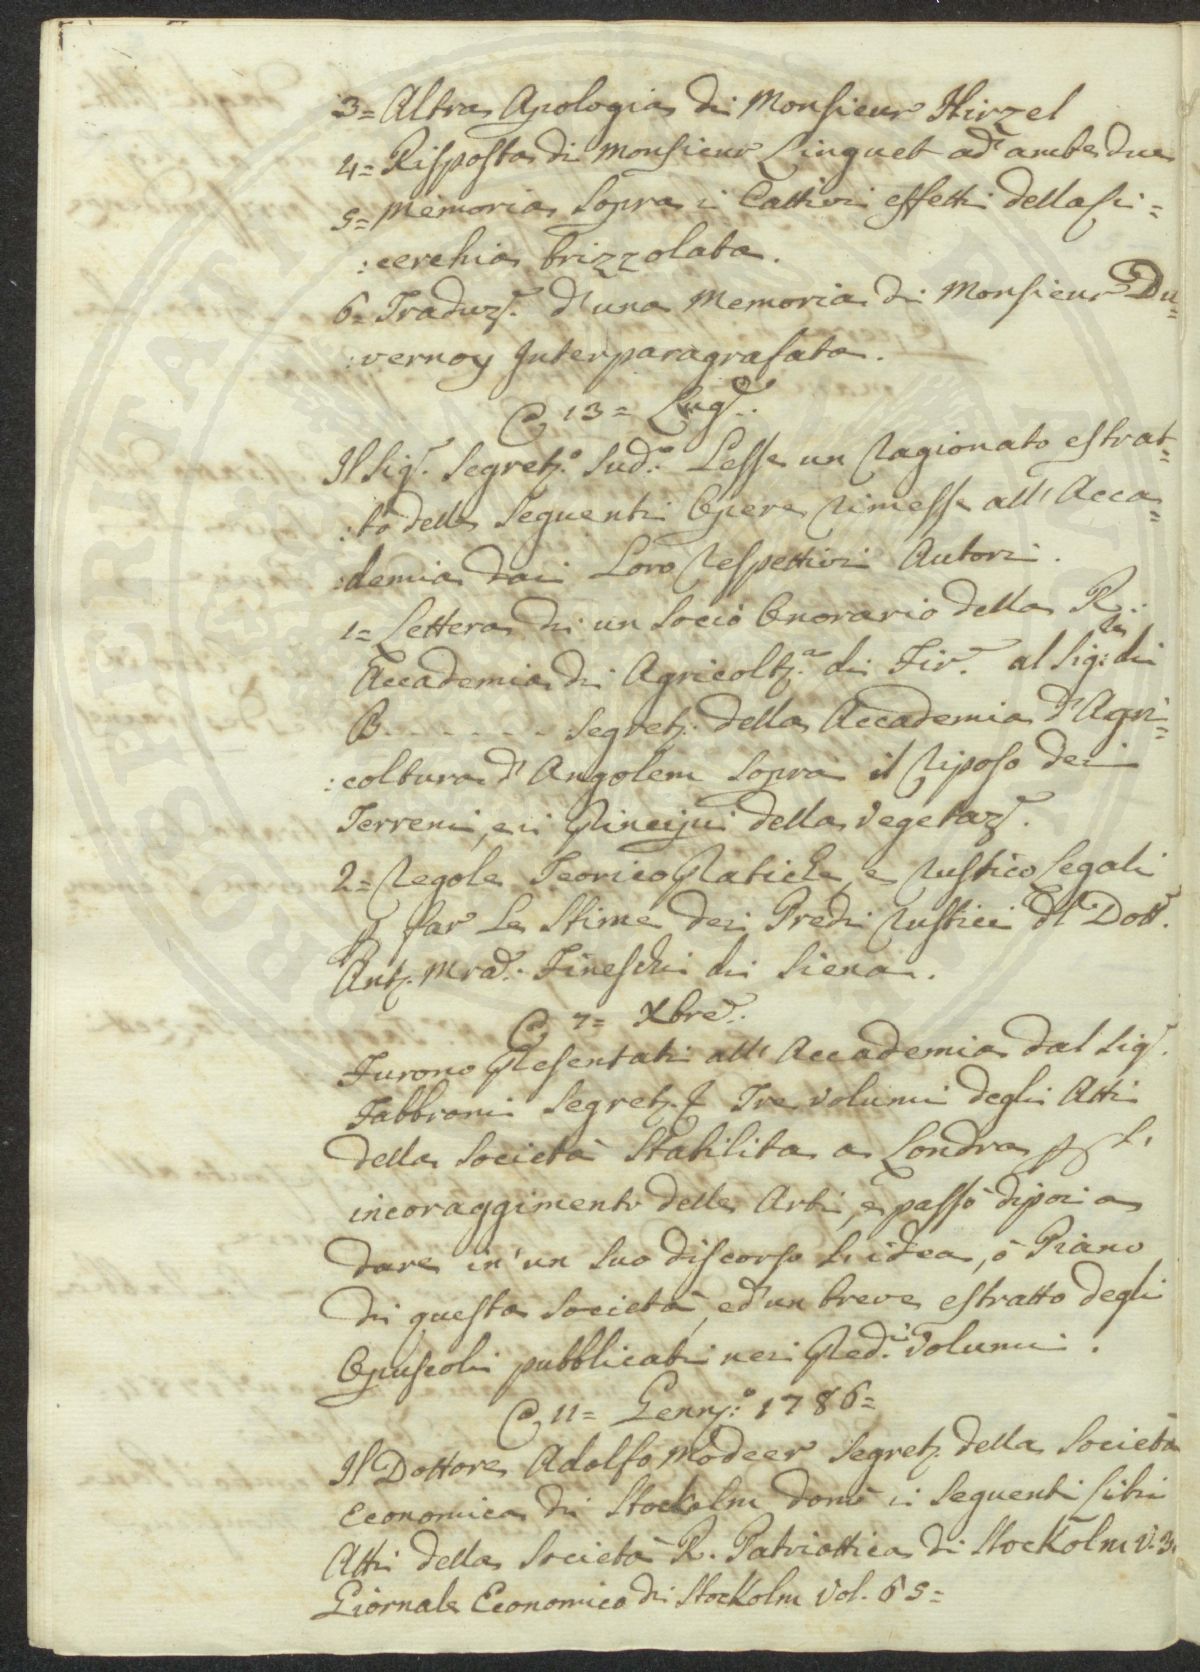 3= Altra Apologia di Monsieur Hirzel
4= Risposta di Monsieur Linguet ad ambedue
5= Memoria Sopra i Cattivi effetti della Ci=
:cerchia brizzolata.
6= Traduz.e d'una Memoria di Monsieur Du=
:vernoy Interparagrafata.
A 13= Lug.o
Il Sig.r Segret.o Sud.o Lesse un Ragionato estrat=
:to delle Seguenti Opere rimesse all'Acca=
:demia dai Loro respettivi Autori.
1= Lettera di un Socio Onorario della R.
Accademia di Agricolt.a di Fir.e al Sig.re di
B- - - - - - Segret. della Accademia d'Agri=
:coltura d'Angolem Sopra il riposo dei
Terreni, e i Principii della Vegetaz.e
2= Regole Teorico Pratiche, e rustico Legali
p far Le Stime dei Predi rustici d.l Dott.e
Ant. M.a Fineschi di Siena.
A 7= Xbre.
Furono Presentati all'Accademia dal Sig.r
Fabbroni Segret. Tre volumi degli Atti
della Società Stabilita a Londra p L'
incoraggimento delle Arti, e passò dipoi a
dare in un Suo discorso L'idea, ò Piano
di questa Società, ed un breve estratto degli
Opuscoli pubblicati nei Pred.i Volumi.
A 11= Genn.o 1786=
Il Dottore Adolfo Modeer Segret. della Società
Economica di Stockolm donò i Seguenti Libri
Atti della Società R. Patriottica di Stockolm V. 3.
Giornale Economico di Stockolm Vol. 65=